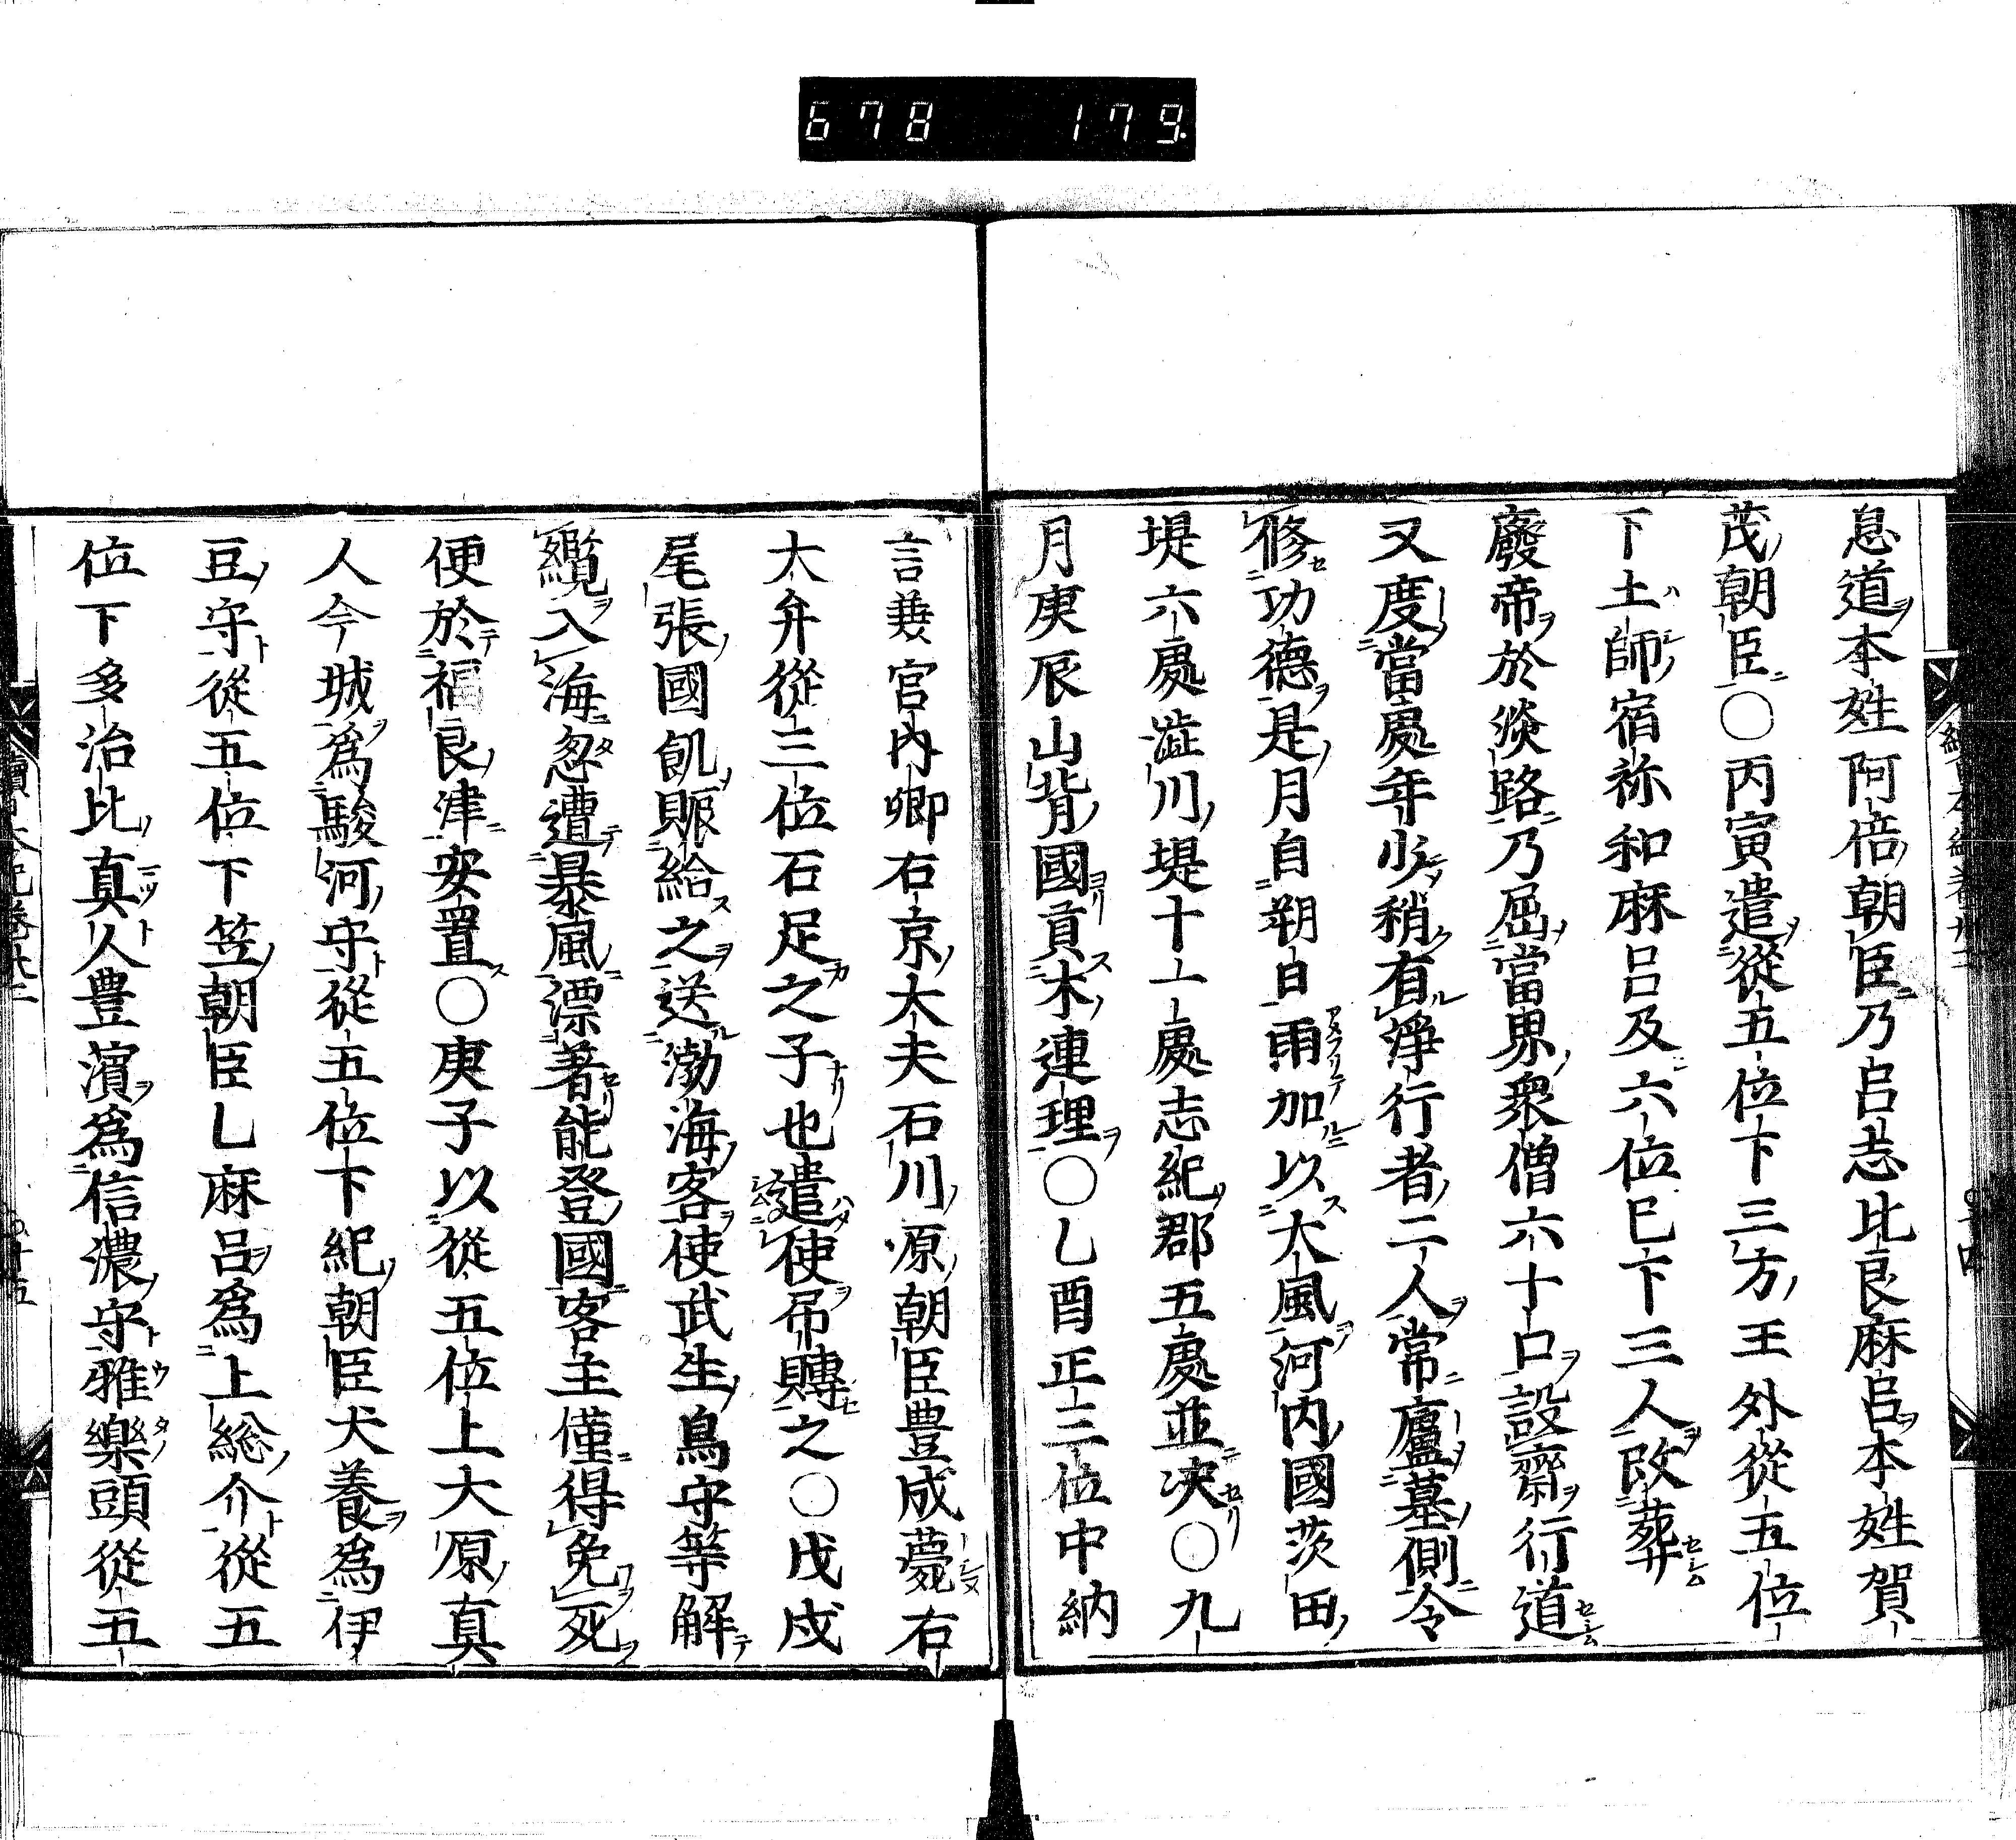 678 179
息道本姓阿倍朝臣乃呂志比良麻呂本姓賀
茂朝臣〇丙寅遣從五位下三方王外從五位
下土師宿祢和麻呂及六位已下三人改葬
廢帝於淡路乃屈當界衆僧六十口設齋行道
又度當處年少稍有淨行者二人常廬墓側令
修功德是月自朔日雨加以大風河內國茨田
堤六處澁川堤十一處志紀郡五處並決〇九
月庚辰山背國貢木連理〇乙酉正三位中納
言兼宮內卿右京大夫石川原朝臣豊成薨右
大弁從三位石足之子也遣使吊賻之〇戊戌
尾張國飢賑給之送渤海客使武生鳥守等解
纜入海忽遭暴風漂著能登國客主僅得免死
便於福良津安置〇庚子以從五位上大原真
人今城為駿河守從五位下紀朝臣犬養為伊
豆守從五位下笠朝臣乙麻呂為上総介從五
位下多治比真人豊濱為信濃守雅樂頭從五